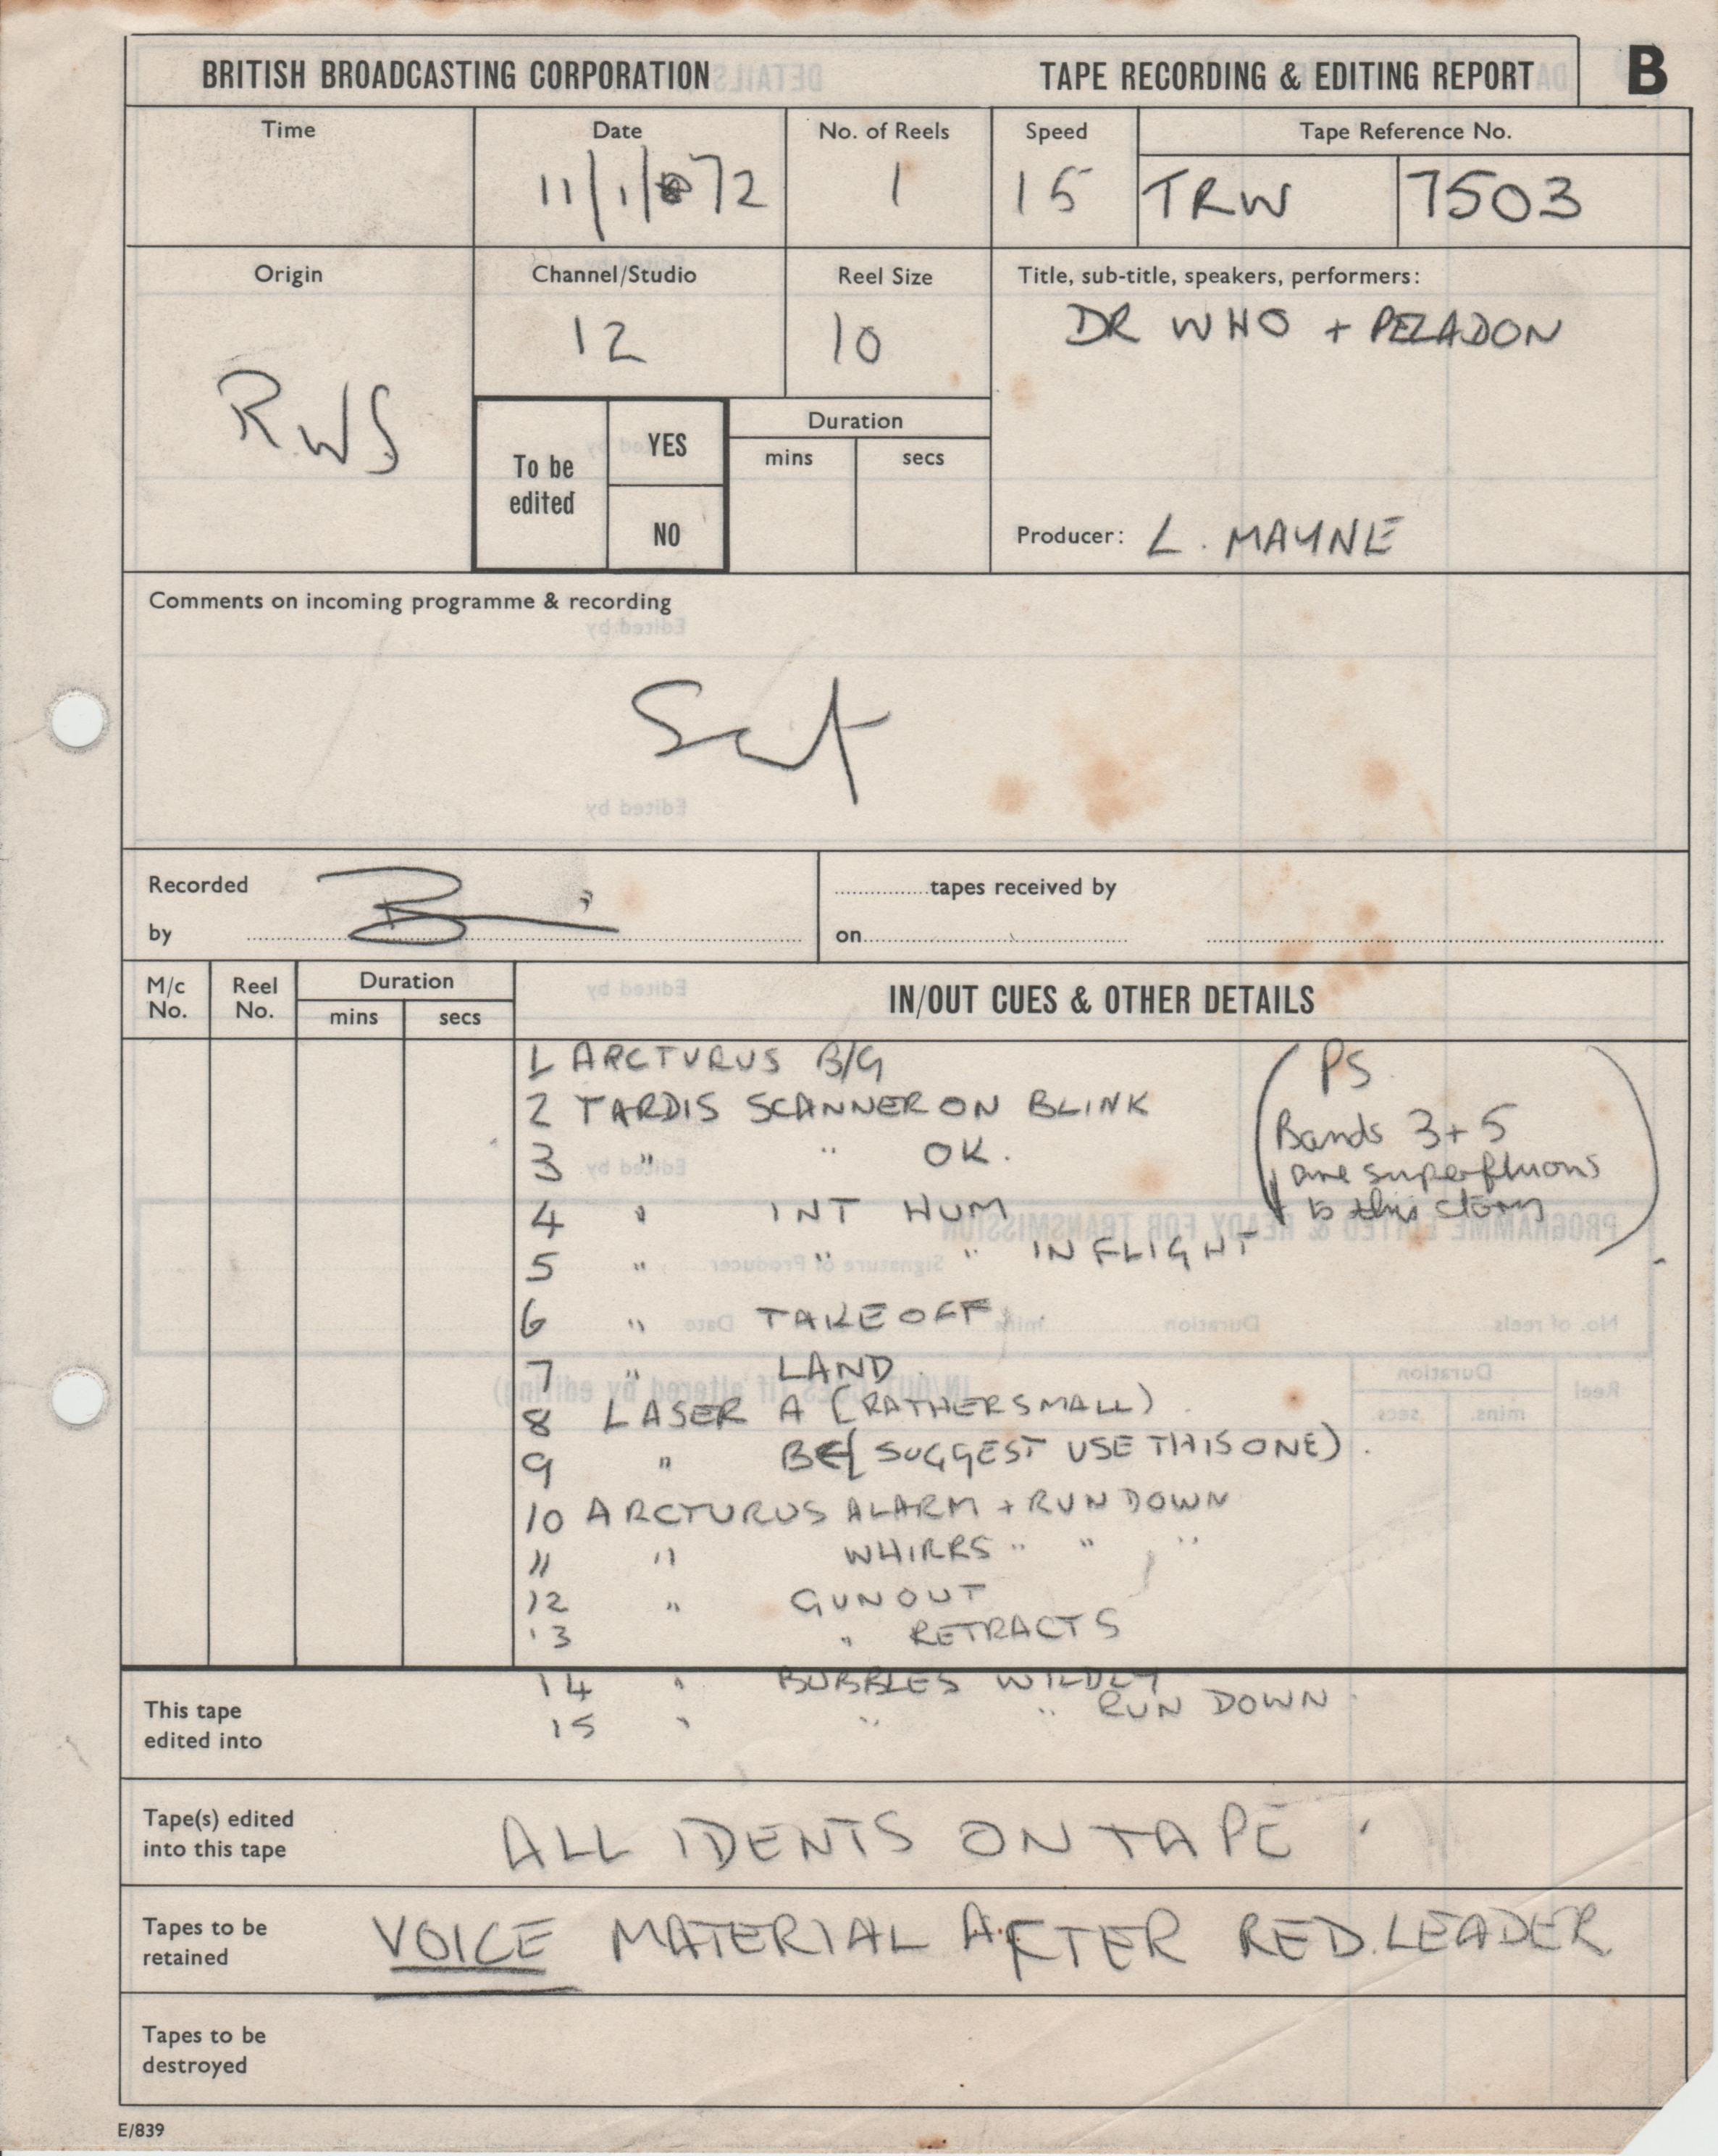 BRITISH BROADCASTING CORPORATION TAPE RECORDING & EDITING REPORT B
Time Date No. of Reels Speed Tape Reference No.
11/1/72 1 15 TRW 7503
Origin Channel/Studio Reel Size Title, sub-title, speakers, performers:
RWS 12 10 DR WHO + PELADON
To be edited YES NO
Duration
mins secs
Producer: L. MAYNE
Comments on incoming programme & recording
Sat
Recorded by
tapes received by
on
M/c No. Reel No. Duration mins secs IN/OUT CUES & OTHER DETAILS
1 ARCTURUS B/G
2 TARDIS SCANNER ON BLINK
3 " " OK.
4 " INT HUM
5 " " " IN FLIGHT
6 " TAKE OFF
7 " LAND
8 LASER A (RATHER SMALL)
9 " B (SUGGEST USE THIS ONE).
10 ARCTURUS ALARM + RUN DOWN
11 " WHIRRS " " "
12 " GUN OUT
13 " RETRACTS
14 " BUBBLES WILDLY
15 " " " RUN DOWN
(PS
Bands 3+5
are superfluous
to this story)
This tape edited into
Tape(s) edited into this tape ALL IDENTS ON TAPE
Tapes to be retained VOICE MATERIAL AFTER RED LEADER
Tapes to be destroyed
E/839